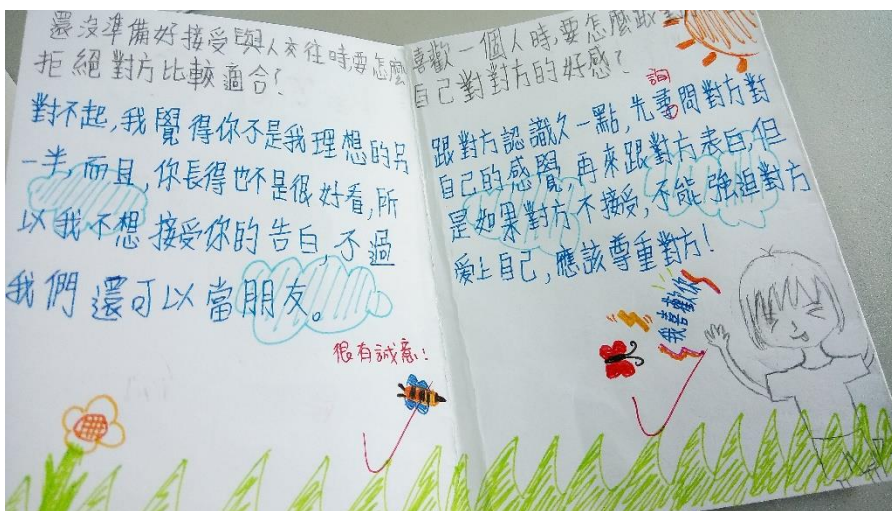 還沒準備好接受與人交往時,要怎麼
拒絕對方比較適合?
對不起,我覺得你不是我理想的另
一半,而且,你長得也不是很好看,所
以我不想接受你的告白,不過
我們還可以當朋友。
很有誠意!
喜歡一個人時,要怎麼跟
自己對對方的好感?
詢
跟對方認識久一點,先尋問對方對
自己的感覺,再來跟對方表白,但
是如果對方不接受,不能強迫對方
愛上自己,應該尊重對方!
我喜歡你